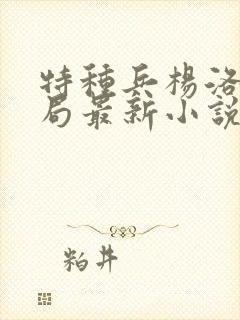 特種兵楊洛
局最新小說
粕井